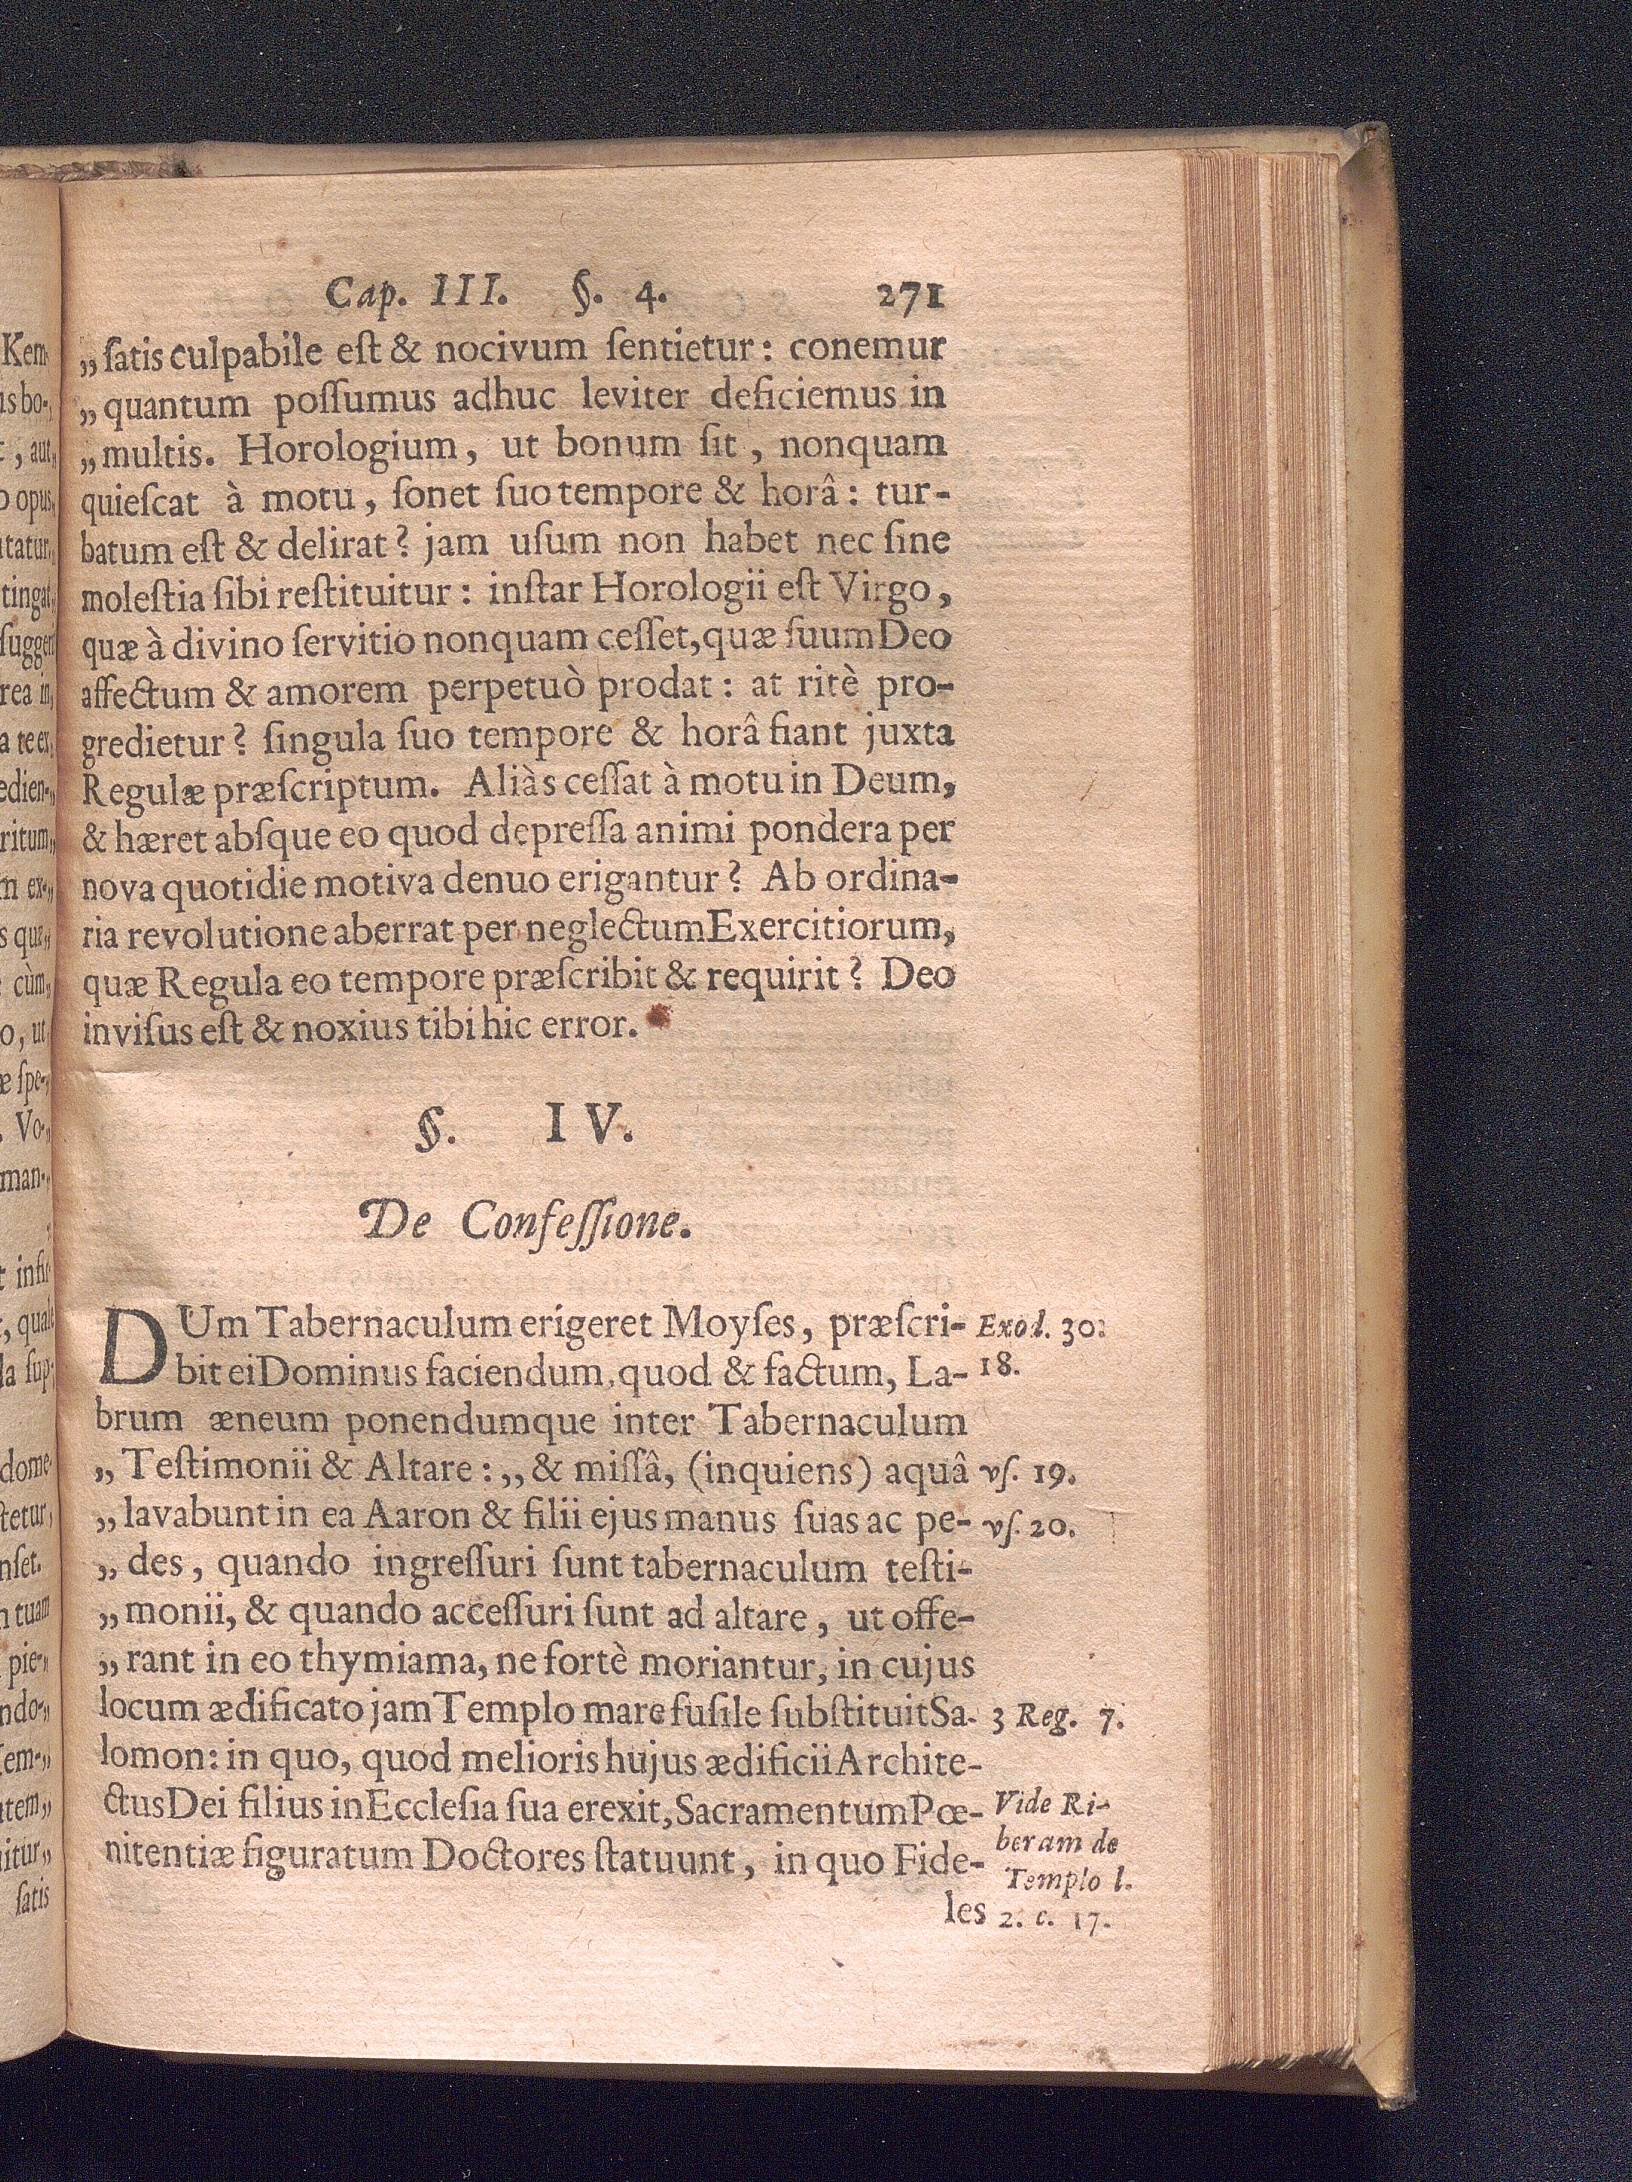 Cap. III. §. 4. 271
„ſatis culpabile eſt & nocivum ſentietur: conemur
„quantum poſſumus adhuc leviter deficiemus in
„multis. Horologium, ut bonum ſit, nonquam
quieſcat à motu, ſonet ſuo tempore & horâ: tur-
batum eſt & delirat? jam uſum non habet nec ſine
moleſtia ſibi reſtituitur: inſtar Horologii eſt Virgo,
quæ à divino ſervitio nonquam ceſſet, quæ ſuum Deo
affectum & amorem perpetuò prodat: at ritè pro-
gredietur? ſingula ſuo tempore & horâ fiant juxta
Regulæ præſcriptum. Aliàs ceſſat à motu in Deum,
& hæret abſque eo quod depreſſa animi pondera per
nova quotidie motiva denuo erigantur? Ab ordina-
ria revolutione aberrat per neglectum Exercitiorum,
quæ Regula eo tempore præſcribit & requirit? Deo
inviſus eſt & noxius tibi hic error.
§. IV.
De Confeſſione.
DUm Tabernaculum erigeret Moyſes, præſcri- Exod. 30:
bit ei Dominus faciendum, quod & factum, La- 18.
brum æneum ponendumque inter Tabernaculum
„Teſtimonii & Altare: „& miſſâ, (inquiens) aquâ vſ. 19.
„lavabunt in ea Aaron & filii ejus manus ſuas ac pe- vſ. 20.
„des, quando ingreſſuri ſunt tabernaculum teſti-
„monii, & quando acceſſuri ſunt ad altare, ut offe-
„rant in eo thymiama, ne fortè moriantur, in cujus
locum ædificato jam Templo mare fuſile ſubſtituit Sa- 3 Reg. 7.
lomon: in quo, quod melioris hujus ædificii Archite-
ctus Dei filius in Eccleſia ſua erexit, Sacramentum Pœ- Vide Ri-
nitentiæ figuratum Doctores ſtatuunt, in quo Fide- beram de
Templo l.
les 2. c. 17.